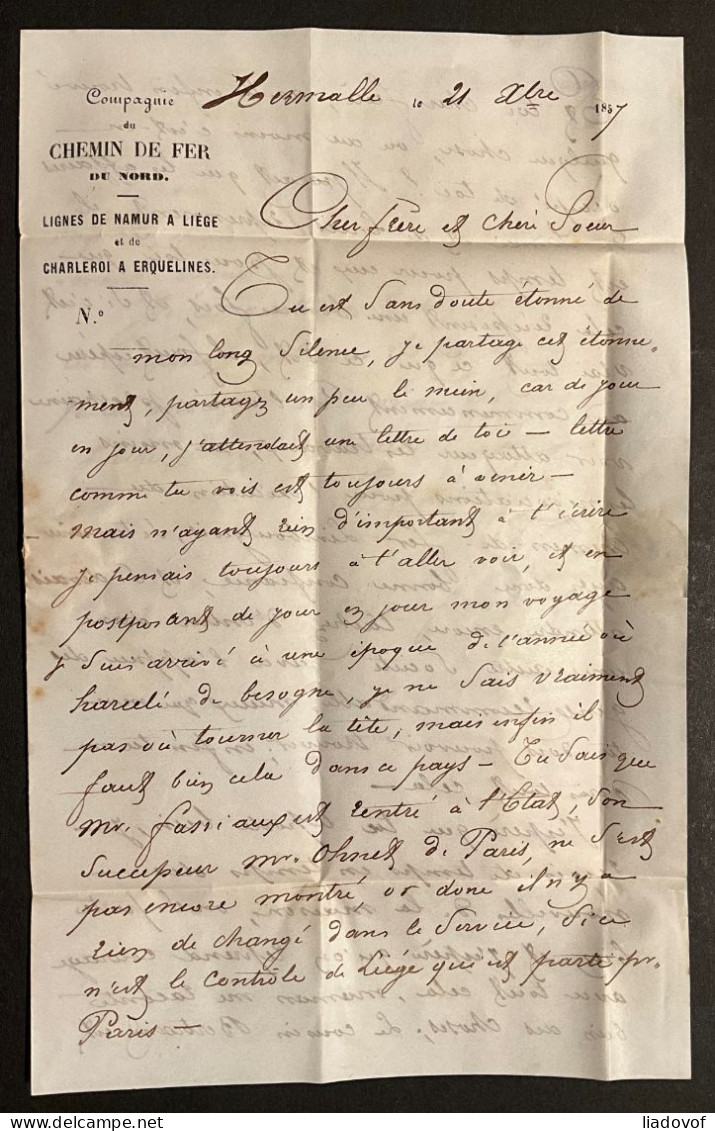 Compagnie
du
CHEMIN DE FER
DU NORD.
LIGNES DE NAMUR A LIÈGE
et de
CHARLEROI A ERQUELINES.
N.º
Hermalle le 21 Xbre 1857
Cher frère et chère Soeur
Tu est Sans doute étonné de
mon long Silence, je partage cet étonne-
ment, partagez un peu le mien, car de jour
en jour, j'attendait une lettre de toi – lettre
comme tu vois est toujours à venir –
mais n'ayant rien d'important à t'écrire
je pensais toujours à t'aller voir, et en
postposant de jour en jour mon voyage
je Suis arrivé à une époque de l'année où
harcelé de besogne, je ne Sais vraiment
pas où tourner la tête, mais enfin il
faut bien cela dans ce pays – Tu Sais que
Mr. fassiaux est rentré à l'Etat, Son
Succepeur Mr. Ohnet de Paris, ne S'est
pas encore montré, or donc il n'y a
rien de changé dans le Service, Si ce
n'est le contrôle de Liége qui est parti pr.
Paris –
liadovof